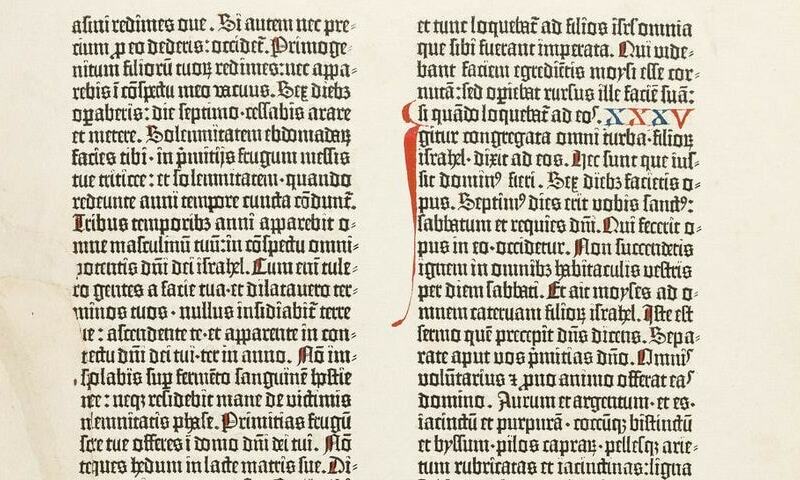 asini redimes oue. Si autem nec pre-
cium p eo dederis: occidet̄. Primoge-
nitum filiorū tuoꝝ redimes: nec appa-
rebis ī cōspectu meo vacuus. Sex diebꝫ
oꝑaberis: die septimo cessabis arare
et metere. Solennitatem ebdomadaꝝ
facies tibi in p̄mitijs frugum messis
tue triticee: et solennitatem quando
redeunte anni tempore cuncta cōdunt̄.
Tribus temporibꝫ anni apparebit o-
mne masculinū tuū: in cōspectu omni-
potentis dn̄i dei israhel. Cum eni tule-
ro gentes a facie tua et dilatauero ter-
minos tuos nullus insidiabit̄ terre
tue: ascendente te et apparente in con-
spectu dn̄i dei tui ter in anno. Nō im-
molabis suꝑ fermēto sanguinē hostie
mee: neqꝫ residebit mane de victimis
solennitatis phase. Primitias frugū
terre tue offeres ī domo dn̄i dei tui. Nō
coques hedum in lacte matris sue. Di-
et tunc loquebat̄ ad filios isrl omnia
que sibi fuerant imperata. Qui vide-
bant faciem egrediētis moysi esse cor-
nutā: sed oꝑiebat rursus ille faciē suā:
si quādo loquebat̄ ad eoꝰ. XXXV
Igitur congregata omni turba filioꝝ
israhel dixit ad eos. Hec sunt que ius-
sit dominꝰ fieri. Sex diebꝫ facietis o-
pus. Septimꝰ dies erit vobis sanctꝰ:
sabbatum et requies dn̄i. Qui fecerit o-
pus in eo occidetur. Non succendetis
ignem in omnibꝫ habitaculis vestris
per diem sabbati. Et ait moyses ad o-
mnem cateruam filioꝝ israhel. Iste est
sermo quē precepit dn̄s dicens. Sepa-
rate aput vos p̄mitias dn̄o. Omnis
volūtarius ⁊ ꝓno animo offerat eas
domino. Aurum et argentum et es
iacinctū et purpurā coccūqꝫ bistinctū
et byssum pilos capraꝝ pellesqꝫ arie-
tum rubricatas et iacinctinas: ligna